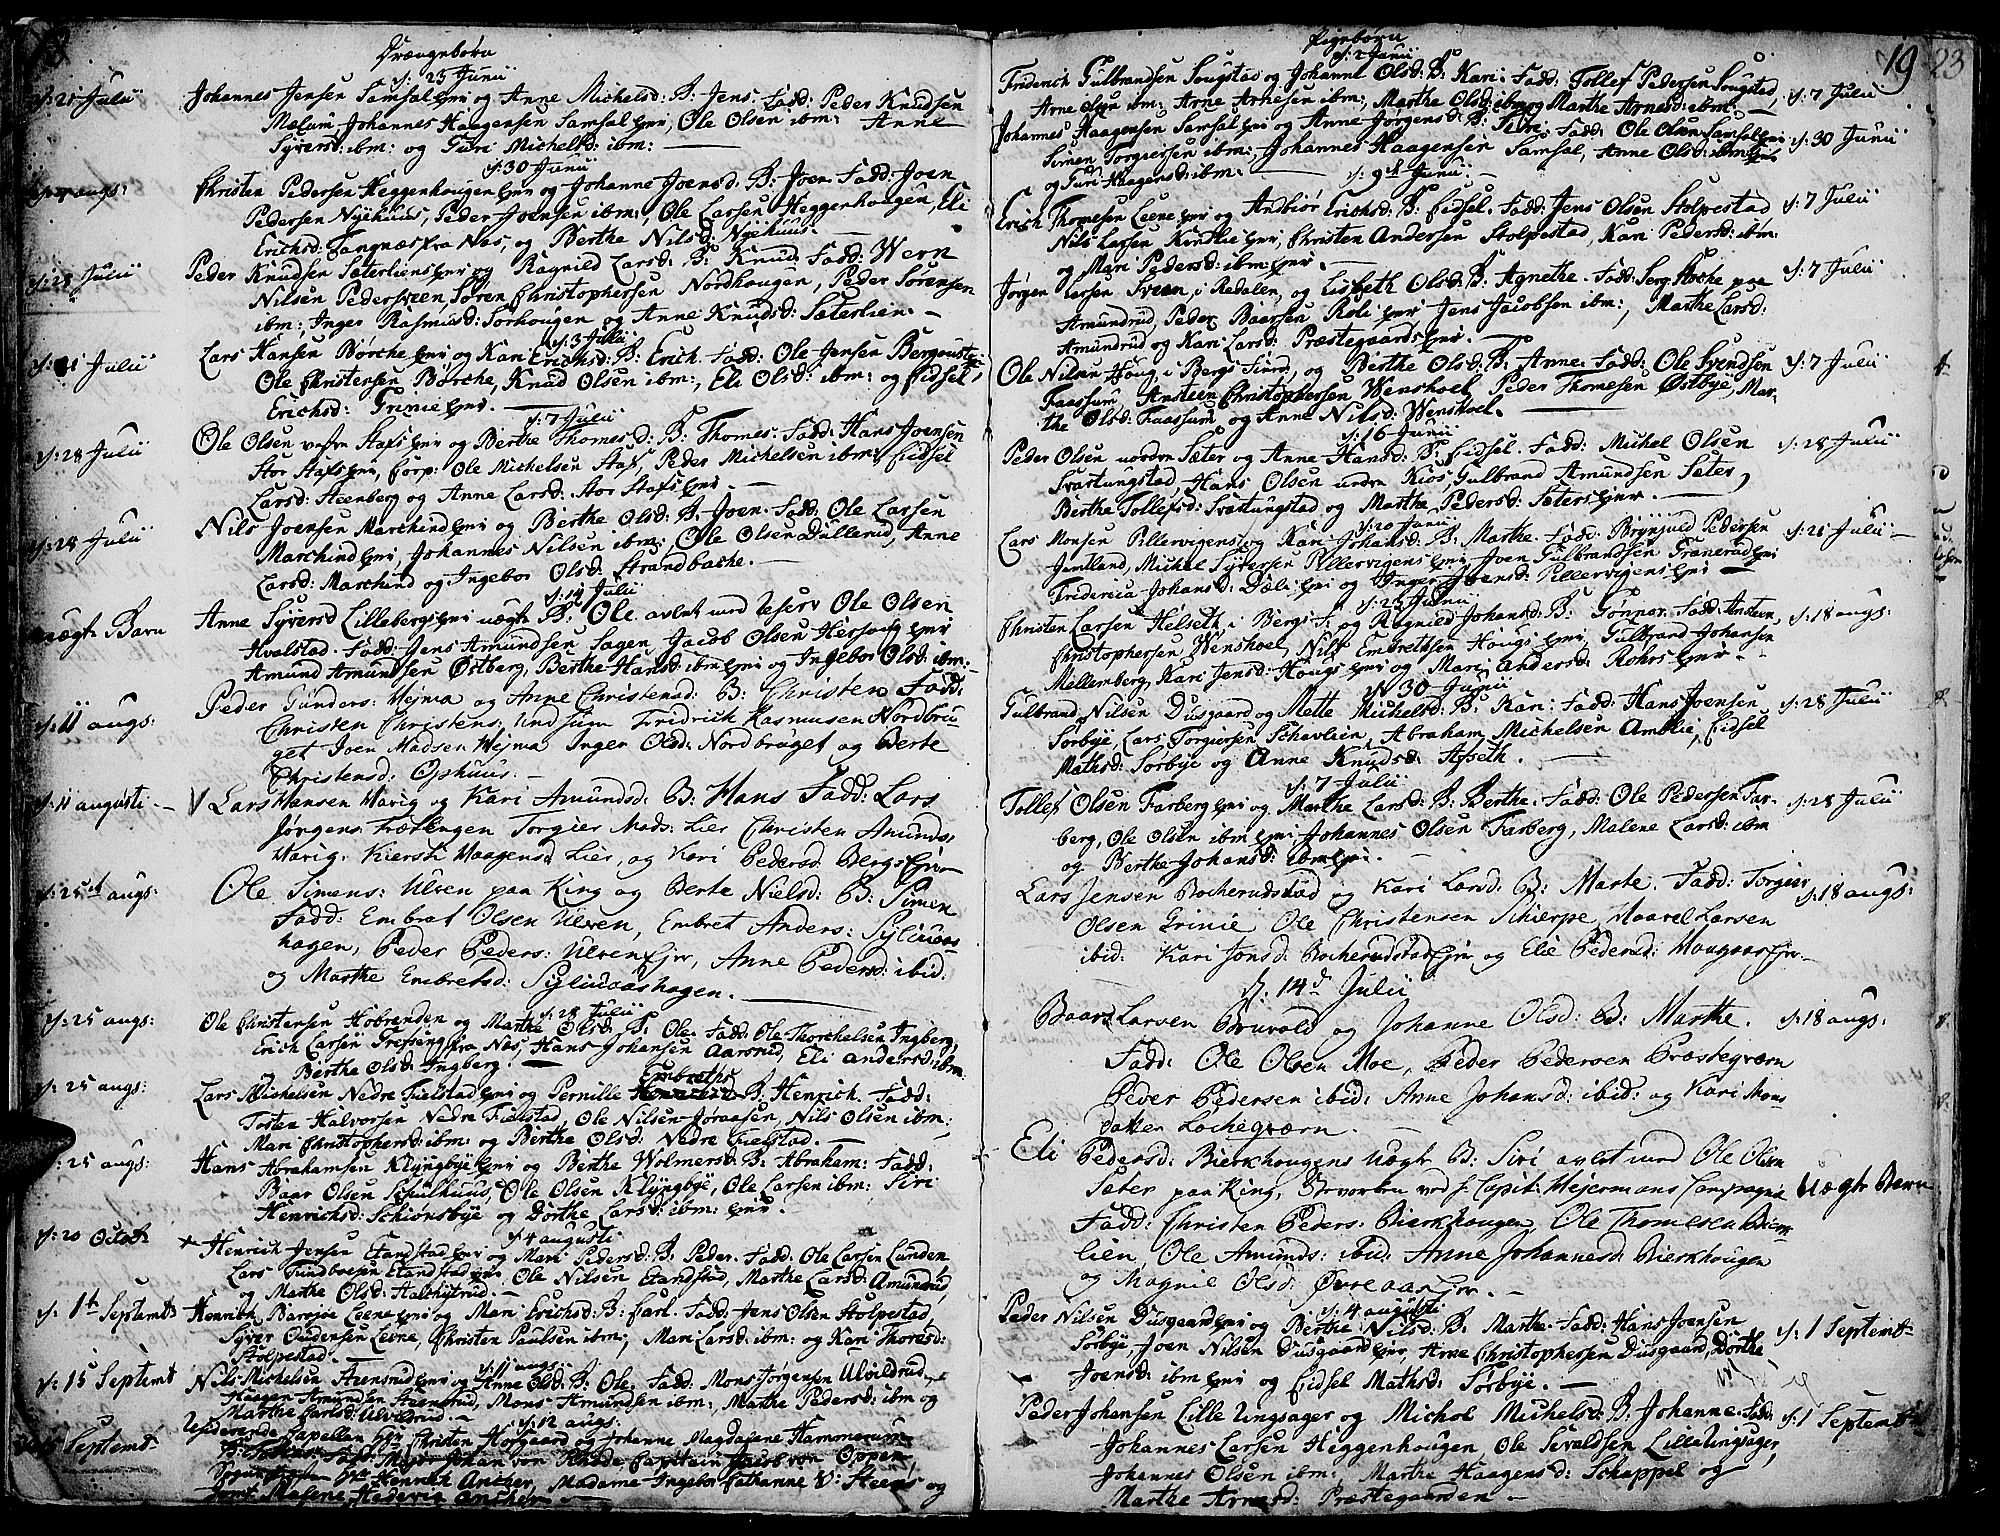 18
Drængebørn
d: 23 Junii
d: 21 Julii
Johannes Jensen Samsal Eyer og Anne Michelsd: B: Jens. Fadd: Peder Knudsen
Mælum Johannes Haagensen Samsal Eyer, Ole Olsen ibm: Anne
Syversd: ibm: og Guri Michelsd: ibm:
d: 30 Junii
augs:
Christen Pedersen Heggenhougen Eyer og Johanne Joensd: B: Joen. Fadd: Joen
Pedersen Nyehuus, Peder Joensen ibm:, Ole Larsen Heggenhougen, Eli
Erichsd: Tangnæs fra Næs, og Berthe Nilsd: Nyehuus.
d: 28 Julii
Peder Knudsen Sæterliens Eyer og Ragnild Larsd: B: Knud. Fadd: Wern
Nilsen Pedersveen, Søren Christophersen Nordhougen, Peder Sørensen
ibm:, Inger Rasmusd: Sørhougen og Anne Knudsd: Sæterlien.
d: 3 Julii
d: 21 Julii
Lars Hansen Børche Eyer og Kari Erichsd: B: Erich. Fadd: Ole Jensen Bergouste,
Ole Christensen Børche, Knud Olsen ibm:, Eli Olsd: ibm: og Eidsel
Erichsd: Grinie Eyer.
d: 7 Julii
d: 28 Julii
Ole Olsen vestre Stafs Eyer og Berthe Thomesd: B: Thomes. Fadd: Hans Joensen
Stor Stafs Eyer, Corp: Ole Michelsen Staf, Peder Michelsen ibm: Eidsel
Larsd: Steenberg og Anne Larsd. Stor Stafs Eyer.
d: 28 Julii
Nils Joensen Marchind Eyer og Berthe Olsd: B: Joen. Fadd: Ole Larsen
Marchind Eyer, Johannes Nilsen ibm:, Ole Olsen Dullerud, Anne
Larsd: Marchind og Ingebor Olsd: Strandbache.
d: 14 Julii
uægt Barn
Anne Syversd Lillebergs Eyer uægt B: Ole avlet med Reserv Ole Olsen
Hvalstad. Fadd: Jens Amundsen Sagen, Jacob Olsen Hersoug Eyer
Amund Amundsen Østberg, Berthe Hansd: ibm Eyer og Ingebor Olsd: ibm:
d: 11 augs:
Peder Gunders: Wejma og Anne Christensd: B: Christen Fadd:
Christen Christens: Undseim Fridrich Rasmusen Nordbru
get Joen Madsen Wejma Inger Olsd: Nordbruget og Berte
Christensd: Ophuus.
d: 11 augusti
V Lars Hansen Warig og Kari Amundsd: B: Hans Fadd: Lars
Jørgens: Frætlingen Torgier Mads: Lier Christen Amunds:
Warig. Kiersti Haagensd Lier, og Kari Pedersd Bergs Ejer
d: 25d augs:
Ole Simens: Ulven paa Ring og Berte Nielsd: B: Simen
Fadd: Embret Olsen Ulven, Embret Anders: Syliuaas
hagen, Peder Peders: Ulven Ejer, Anne Pedersd: ibid:
og Marthe Embretsd: Syliuaashagen.
d: 28 Julii
d: 25 augs:
Ole Christensen Hobrenden og Marthe Olsd: B: Ole. Fadd: Ole Thorchelsen Ingberg,
Erich Larsen Frefseng fra Næs, Hans Johansen Aarsrud, Eli Andersd: ibm:
og Berthe Olsd: Ingberg.
d: 25 augs:
Embretsd
Lars Michelsen Nedre Fielstad Eyer og Pernille B: Henrich. Fadd:
Tosten Halvorsen Nedre Fielstad, Ole Nilsen Jøraasen, Nils Olsen ibm:
Mari Christophersd: ibm: og Berthe Olsd: Nedre Fielstad.
d: 25 augs:
Hans Abrahamsen Klyngbye Eyer og Berthe Wolmersd: B: Abraham: Fadd:
Baar Olsen Schulhuus, Ole Olsen Klyngbye, Ole Larsen ibm: Siri
Henrichsd: Schiønsbye og Dorthe Larsd: ibm: Eyer.
d: 4 augusti
d: 20 Octob:
Henrich Jensen Etanstad Eyer og Mari Pedersd: B: Peder. Fadd: Ole Larsen Lunden
Lars Etandstad Eyer, Ole Nilsen Etandstad, Marthe Larsd: Amundrud
og Marthe Olsd:
d: 1t Septemb:
Henrich Leene Eyer og Mari Erichsd: B: Carl. Fadd: Jens Olsen Stolpestad,
Syver Gudersen Leene, Christen Paulsen ibm:, Mari Larsd: ibm: og Kari Thoresd:
Stolpestad.
d: 11 augs:
d: 15 Septemb
Nils Michelsen Steensrud Eyer og Anne Olsd: B: Ole. Fadd: Mons Jørgensen Ulvildrud,
Haagen Amundsen Steensrud, Mons Amundsen ibm:, Marthe Pedersd: ibm og
Marthe Carlsd: Ulvildrud.
d: 12 augs:
Septemb
Residerende Capellan Hr Christen Hofgaard og Johanne Magdalene Hammerum
Fadd: Major Johan von Rhode Capitein Jacob von Oppen,
Hr: Henrich Ancher, Madame Ingebor Cathanne v: Steens og
Malene Hedevig Ancher
Pigebørn
19
23
d: 2 Junii
Friderich Gulbrandsen Sougstad og Johanne Olsd: B: Kari. Fadd: Tollef Pedersen Sougstad,
Arne Olsen ibm: Arne Arnesen ibm:, Marthe Olsd: ibm og Marthe Arnesd: ibm:
d: 7 Julii
Johannes Haagensen Samsal Eyer og Anne Jørgensd: B: Siri. Fadd: Ole Olsen Samsal Eyer
Simen Torgiersen ibm:, Johannes Haagensen Samsal, Anne Olsd: ibm Eyer
og Turi Haagensd: ibm.
d: 30 Junii
d: 9d Junii
Erich Thomesen Leene Eyer og Andbiør Erichsd: B: Eidsel. Fadd: Jens Olsen Stolpestad
Nils Larsen Kindlie Eyer, Christen Andersen Stolpestad, Kari Pedersd: ibm:
og Mari Pedersd: ibm: Eyer.
d: 7 Julii
Jørgen Larsen Sveen, i Redalen, og Lisbeth Olsd: B: Agnethe. Fadd: Serg: Stoche paa
Amundrud, Peder Baarsen Roli Eyer Jens Jacobsen ibm:, Marthe Larsd:
Amundrud og Kari Larsd: Præstegaards Eyer.
d: 7 Julii
Ole Nilsen Houg i Bergs Fierd., og Berthe Olsd: B: Anne. Fadd: Ole Svendsen
Faassum, Ansteen Christophersen Wenshoel Peder Thomesen Østbye, Mar-
the Olsd: Faassum og Anne Nilsd: Wenshoel.
d: 7 Julii
d: 16 Junii
Peder Olsen nordre Sæter og Anne Hansd: B: Eidsel. Fadd: Michel Olsen
Svartungstad, Hans Olsen nedre Kios, Gulbrand Amundsen Sæter,
Berthe Tollefsd: Svartungstad og Marthe Pedersd: Sæters Eyer.
d: 28 Julii
d: 20 Junii
Lars Monsen Pillervigens og Kari Johansd: B: Marthe. Fadd: Brynjuld Pedersen
Jemtland, Michel Syversen Pillervigens Eyer, Joen Gulbrandsen Tranerud Eyer
Fridericia Johansd: Dæli Eyer og Inger Joensd: Pillervigens Eyer
d: 21 Julii
d: 23 Junii
Christen Larsen Helseth i Bergs F. og Ragnild Johansd: B: Gønner. Fadd: Ansteen
Christophersen Wenshoel, Nils Embretsen Hougs Eyer, Gulbrand Johansen
Mellemberg, Kari Jensd: Hougs Eyer og Mari Andersd: Rohrs Eyer.
d: 18 augs:
d: 30 Junii
Gulbrand Nilsen Dusgaard og Mette Michelsd: B: Kari: Fadd: Hans Joensen
Sørbye, Lars Torgiersen Schavlein, Abraham Michelsen Amblie, Eidsel
Mathsd: Sørbye og Anne Knudsd: Afseth.
d: 28 Julii
d: 7 Julii
Tollef Olsen Farberg Eyer og Marthe Larsd: B: Berthe. Fadd: Ole Pedersen Far-
berg, Ole Olsen ibm Eyer Johannes Olsen Farberg, Malene Larsd: ibm
og Berthe Johansd: ibm Eyer.
d: 28 Julii
Lars Jensen Bocherudstad og Kari Larsd: B: Marte. Fadd: Torgier
Olsen Grinie Ole Christensen Schierpe, Haavel Larsen
ibid: Kari Jonsd: Bocherudstad Ejer og Elie Pedersd: Haugaas Ejer
d: 18 augs:
d. 14d Julii
Baar Larsen Bruvold og Johanne Olsd: B: Marthe.
Fadd: Ole Olsen Moe, Peder Pedersen Præstegværn
Peder Pedersen ibid: Anne Johansd: ibid: og Kari Mons
datter Lochegværn.
d: 18 augs:
Eli Pedersd: Bierkhougens Uægt B: Siri avlet med Ole Olsen
Sæter paa Ring, Erhverben ved H: Capit: Wejermans Compagnie
Fadd: Christen Peders: Bierkhougen, Ole Thomesen
lien Ole Amunds: ibid: Anne Johannesd: Bierkhougen
og Magnil Olsd: Øvre aas Ejer.
Uægte Barn
d: 4 augusti
Peder Nilsen Dusgaard Eyer og Berthe Nilsd: B: Marthe. Fadd: Hans Joensen
Sørbye, Joen Nilsen Dusgaard Eyer, Arne Christophersen Dusgaard, Dorthe
Joensd: ibm Eyer og Eidsel Mathsd: Sørbye.
d: 1 Septemb
Peder Johansen Lille Ungsager og Michol Michelsd: B: Johanne. Fadd:
Johannes Larsen Heggenhougen, Ole Sevaldsen Lille Ungsager,
Johannes Olsen ibm: Marthe Haagensd: Schappel og
Marthe Arnesd: Præstegaarden
d: 1 Septemb